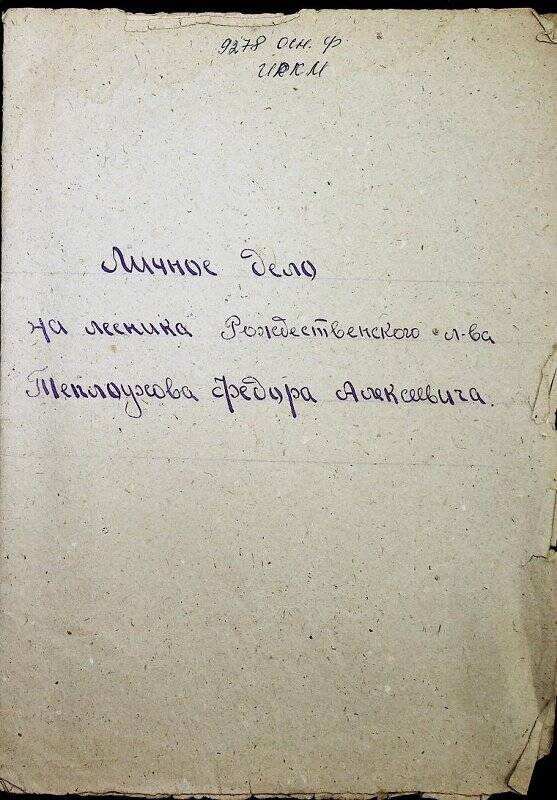 9278 осн. ф
ИРКМ
Личное дело
на лесника Рождественского л-ва
Теплоухова Федора Алексеевича.